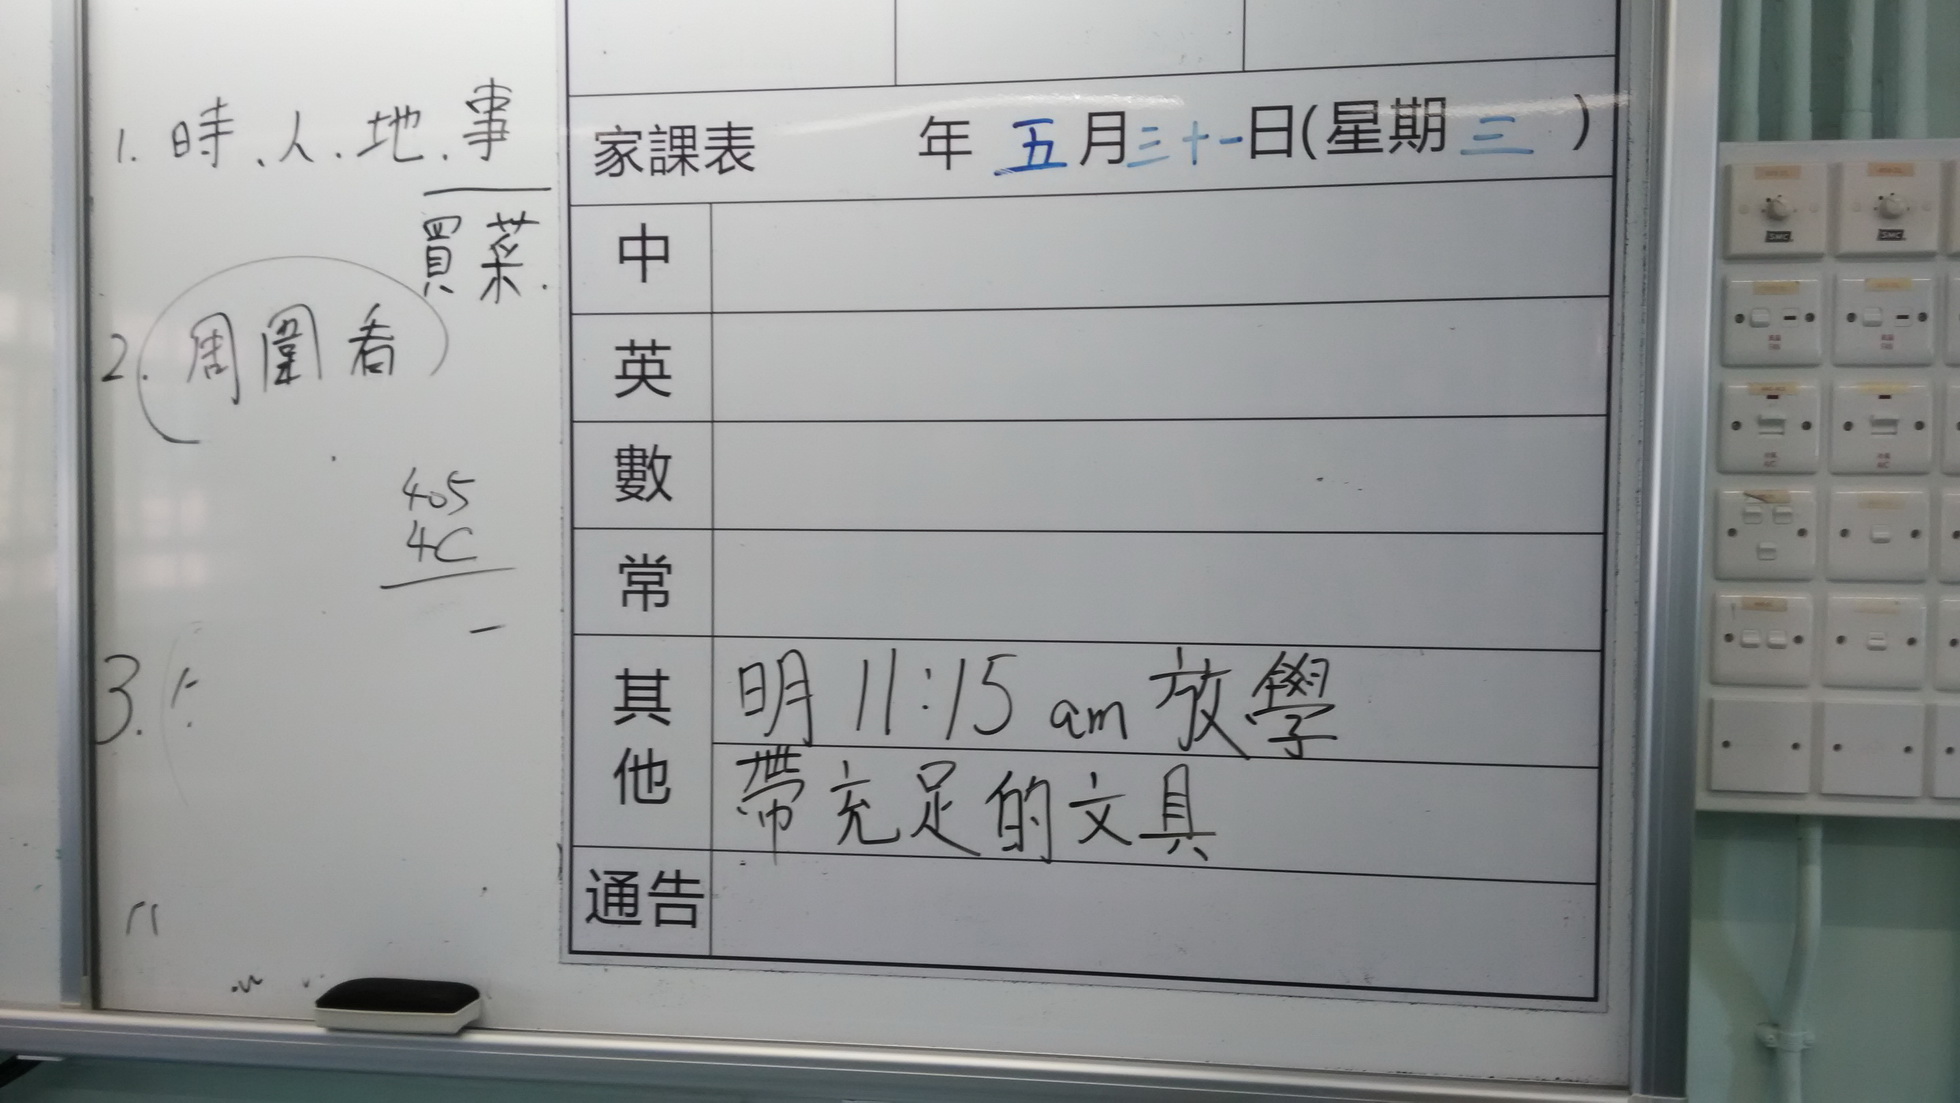 1. 時、人、地、事
買菜.
2. 周圍看
405
4C
3.
家課表 年 五月三十一日(星期三)
中
英
數
常
其他
明 11:15 am 放學
帶充足的文具
通告